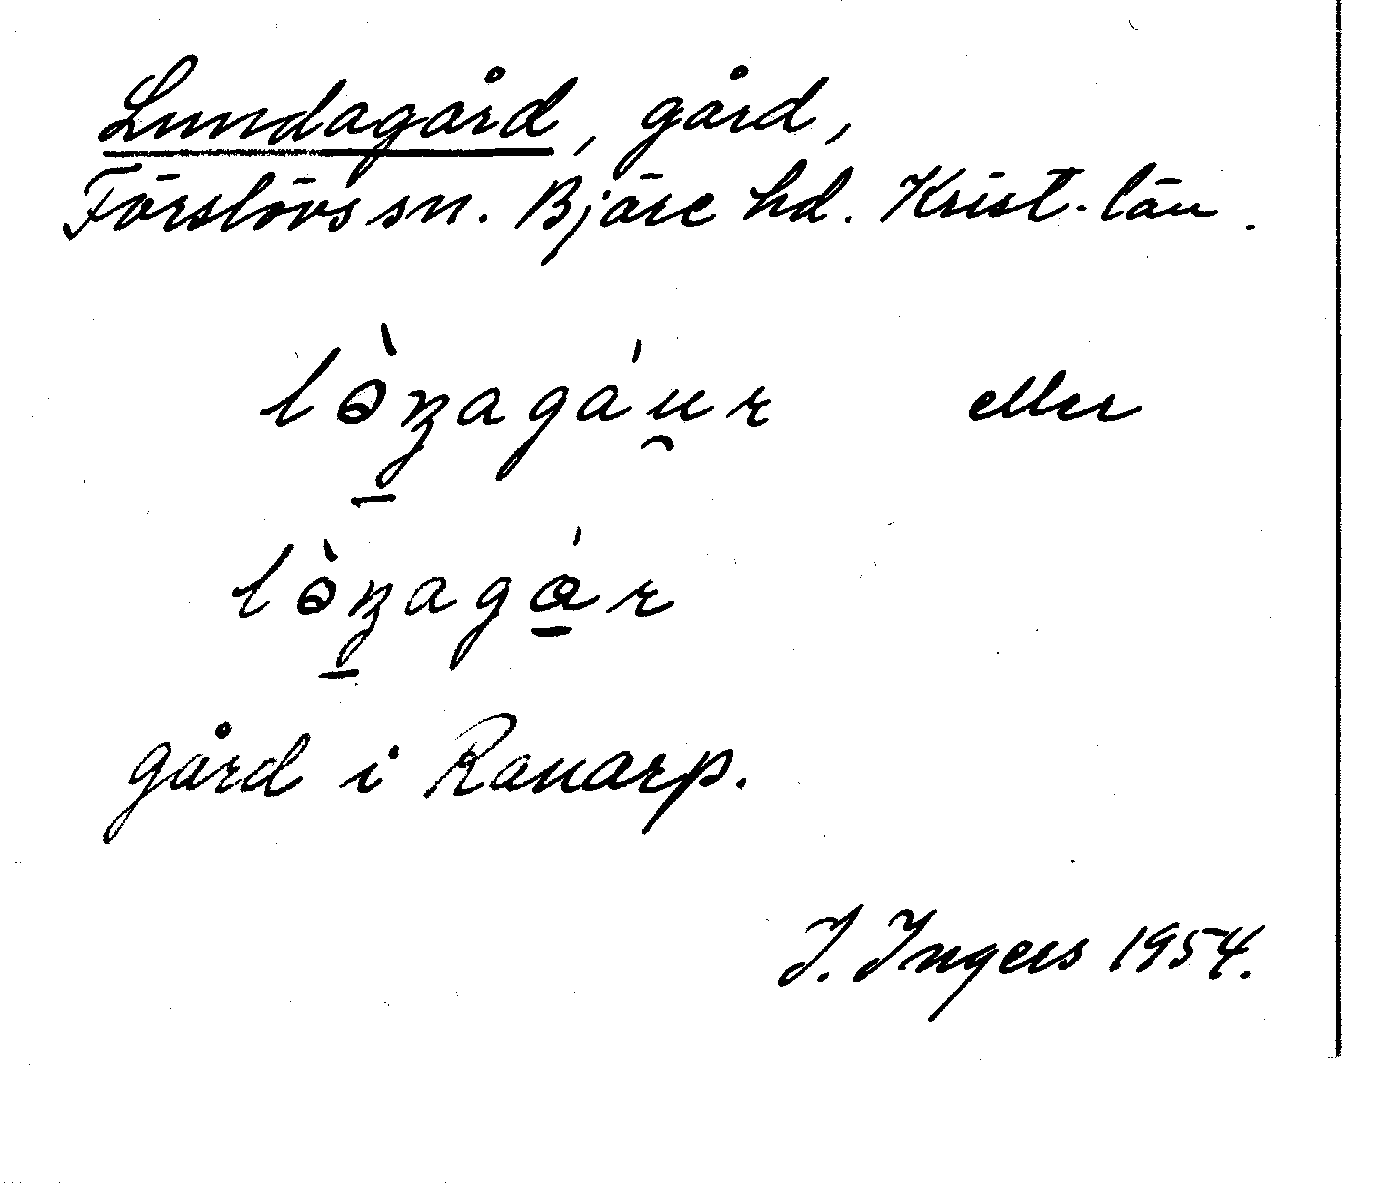 Lundagård, gård,
Förslövs sn. Bjäre hd. Krist. län.
lə̀ɳagáu̯r eller
lə̀ɳagár
gård i Ranarp.
J. Ingers 1954.